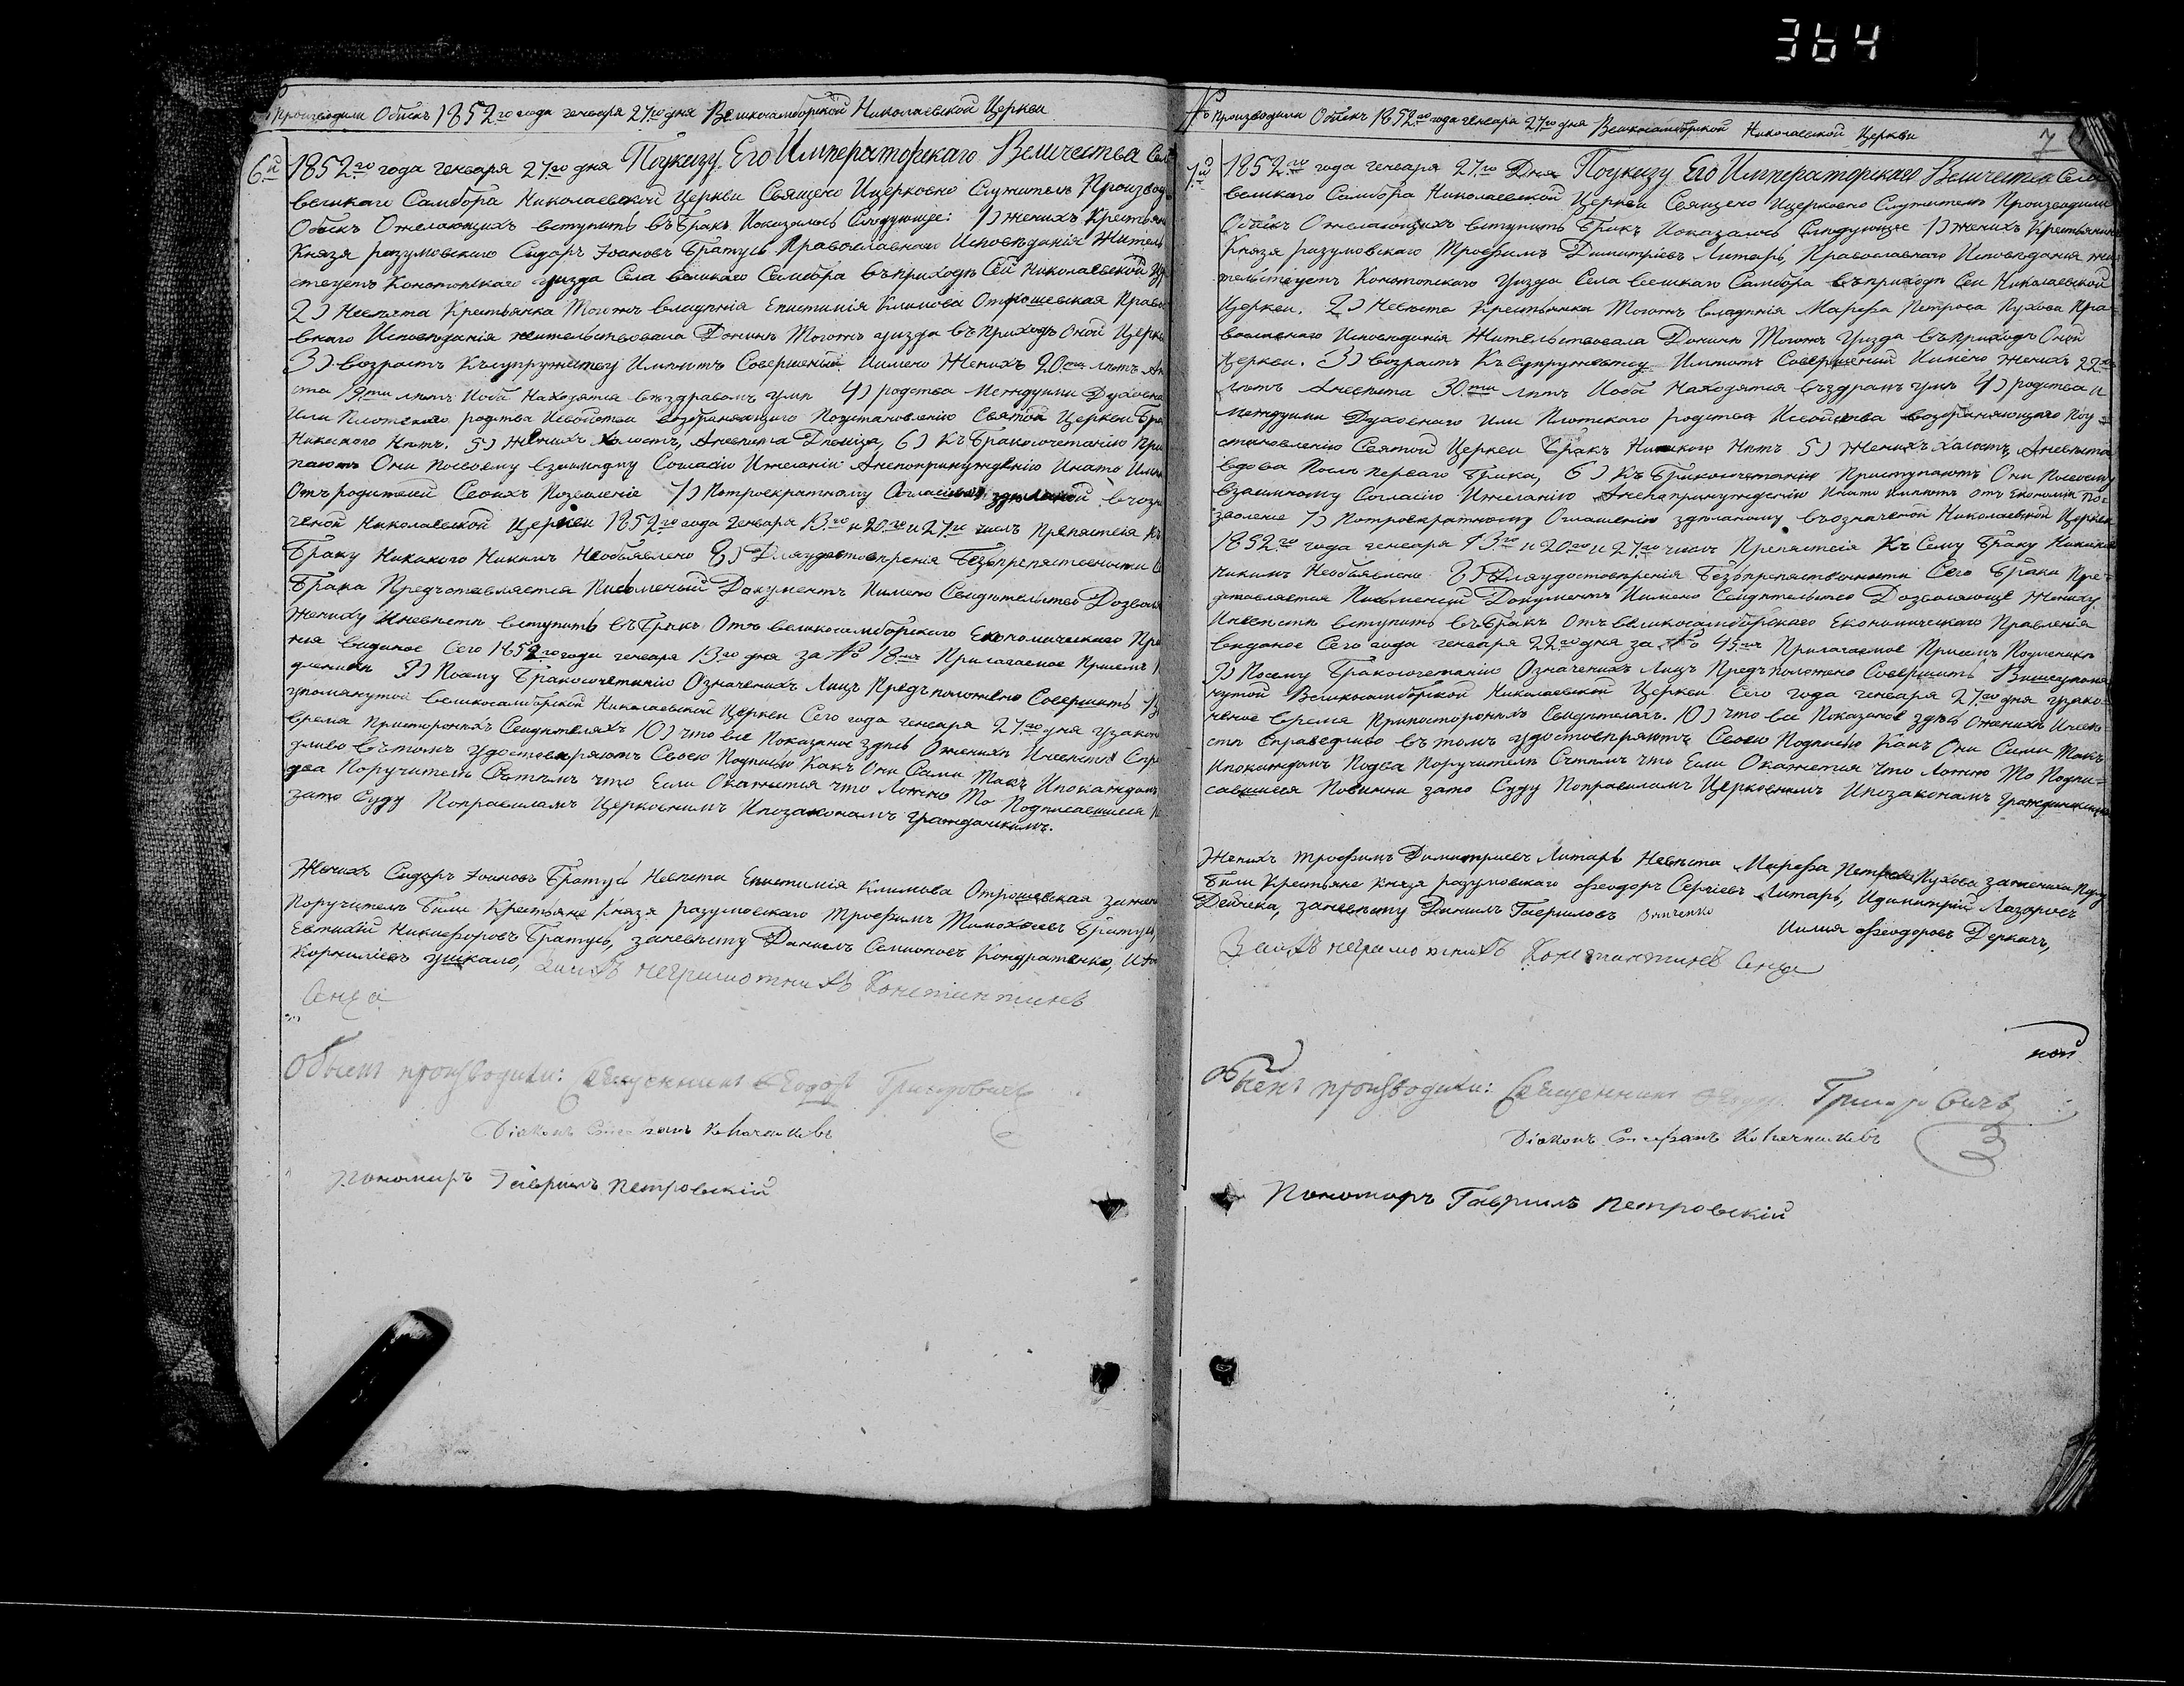 364
Производили Обыскъ 1852го года генваря 27го дня Великосамборской Николаевской Церкви
6й 1852го года генваря 27го дня Поуказу Его Императорскаго Величества Сел
великаго Самбора Николаевской Церкви Священо Ицерковно Служители Производ
Обыскъ Ожелающихъ вступить въ Бракъ Иоказалось Следующее: 1) женихъ Крестьян
Князя разумовскаго Сидоръ Іоановъ Братусь Православнаго Исповѣданія Житель
ствуетъ Конотопскаго уизда Села великаго Самбора въ приходѣ Сей Николаевской Це
2) Невѣста Крестьянка Тогожъ владѣнія Епистимія Климова Отрошевская Право
внаго Исповѣданія жительствовала Донинѣ Тогожъ уизда въ приходѣ Оной Церкви
3) возрастъ Къ супружеству Имѣютъ Совершеній Имено Женихъ 20ти лѣтъ Ан
ста 19ти лѣтъ Иоба Находятся въ здравомъ умѣ 4) родства Междуими Духовна
Или Плотскаго родства Исвойства возбраняющаго Поустановленію Святой Церкви Бра
Никакого Нѣтъ. 5) Женихъ холостъ, Аневѣста Дѣвица, 6) Къ Бракосочетанію При
паютъ Они Посвоему взаимному Согласію Ижеланію Анепопринужденію Инато Имѣ
Отъ родителей Своихъ Позволеніе 7) Потроекратному Оглашенію здѣланой въ озн
ченой Николаевской Церкви 1852го года Генваря 13го и 20го и 27го числъ Препятствія Къ
Браку Никакого Никимъ Необъявлено 8) Дляудостовѣренія Безъпрепятственности С
Брака Предъставляется Письменій Документъ Имено Свидѣтельство Дозволя
Жениху Иневѣстѣ вступить въ Бракъ Отъ великосамборскаго Економическаго Пра
нія виданое Сего 1852го года генваря 13го дня за № 18мъ Прилагаемое Присемъ
длиникъ 9) Посему Бракосочетанію Означенихъ Лицъ Предъположено Совершить В
упомянутой великосамборской Николаевской Церкви Сего года генваря 27го дня узакон
время Присторонихъ Свидѣтеляхъ 10) что все Показаное здѣсь Оженихѣ Иневѣстѣ Спра
дливо въ томъ удостовѣряютъ Своею Подписью Какъ Они Сами Такъ Ипокаждомъ
два Поручителѣ Сътѣмъ что Если Окажется что Ложно То Подписавшиеся
зато Суду Поправиламъ Церковнимъ Ипозаконамъ гражданскимъ.
Женихъ Сидоръ Іоановъ Братусь Невѣста Епистимія Климова Отрошевская за жен
Поручителѣ Били Крестьяне Князя разумовскаго Трофимъ Тимофѣевъ Братусь,
Евтихій Никифоровъ Братусь, заневѣсту Даниилъ Семионовъ Кондратенко,
Корниліевъ ушкало, Заихъ неграмотнихъ Константинъ
Обыскъ производили: Священникъ Ѳеодоръ Григоровичъ
Діаконъ
Пономарь Гавриилъ Петровскій
Производили Обыскъ 1852го года генваря 27го дня Великосамборской Николаевской Церкви
7
7й 1852го года генваря 27го Дня Поуказу Его Императорскаго Величества Села
великаго Самбора Николаевской Церкви Священо Ицерковно Служители Производили
Обыскъ Ожелающихъ вступить Бракъ Иоказалось Следующее 1) женихъ Крестьянинъ
Князя разумовскаго Трофимъ Димитріевъ Литарь, Православнаго Исповѣданія жи
тельствуетъ Конотопского Уизда Села великаго Самбора въ приходѣ Сеи Николаевской
Церкви. 2) Невѣста Крестьянка Тогожъ владѣнія Марѳа Петрова Пухова Пра
вославнаго Исповѣданія Жительствовала Донинѣ Тогожъ Уизда въ приходѣ Оной
Церкви. 3) возрастъ Къ Супружеству Имѣютъ Совершеній Имено Женихъ 22хъ
лѣтъ Аневѣста 30ти лѣтъ Иоба Находятся въ здравъ умѣ 4) родства
Междуими Духовнаго Или Плотскаго родства Исвойства возбраняющаго Поу
становленію Святой Церкви Бракъ Никакого Нѣтъ 5) Женихъ Холостъ, Аневѣста
вдова Послѣ перваго Брака, 6) Къ Бракосочетанію Приступаютъ Они Посвоему
взаимному Согласію Ижеланію Анепопринужденію Инато имѣютъ отъ Економіи Поз
воленіе 7) Потроекратному Оглашенію здѣланому въ означеной Николаевской Церкви
1852го года генваря 13го и 20го и 27го числъ Препятствія Къ Сему Браку Никакого
Никимъ Необъявлено 8) Дляудостовѣренія Безъпрепятственности Сего Брака Пре
дставляется Письменій Документъ Имено Свидѣтельство Дозволяюще Жениху
Иневѣстѣ вступить въ Бракъ Отъ великосамборскаго Економическаго Правленія
виданое Сего года генваря 22го дня за № 45мъ Прилагаемое Присемъ Подленикѣ
9) Посему Бракосочетанію Означенихъ Лицъ Предъположено Совершить Вишеупомя
нутой Великосамборской Николаевской Церкви Сего года генваря 27го дня узако
неное время Припостороніхъ Свидѣтеляхъ. 10) что все Показаное здѣсь Оженихѣ Иневѣ
стѣ Справедливо въ томъ удостовѣряютъ Своею Подписью Какъ Они Сами Такъ
Ипокаждомъ Подва Поручителѣ Сътѣмъ что Если Окажется что Ложно То Подпи
савшиеся Повинни зато Суду Поправиламъ Церковнимъ Ипозаконамъ гражданскимъ
Женихъ Трофимъ Димитриевъ Литарь Невѣста Марѳа Петрова Пухова заженика Пору
Били Крестьяне князя разумовскаго Ѳеодоръ Сергіевъ Литарь, Идимитрій Лазаровъ
Дейнека, заневѣсту Даниилъ Гавриловъ Зинченко Иилия Ѳеодоровъ Деркачъ,
Заихъ неграмотнихъ Константинъ
Обыскъ производили: Священникъ Григоровичъ
Діаконъ
Пономарь Гавриилъ Петровскій